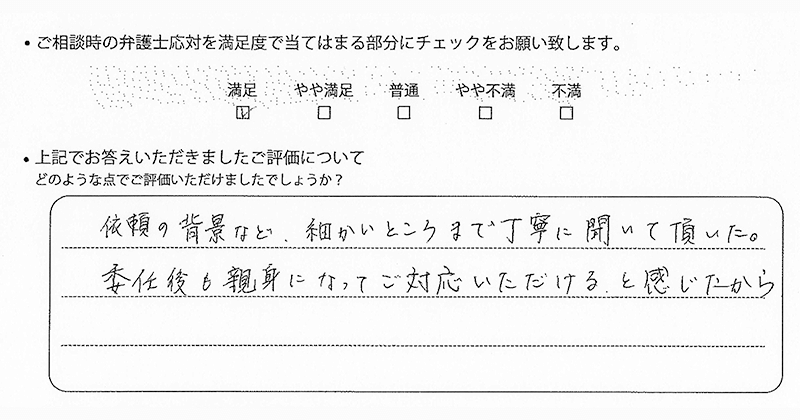 ・ご相談時の弁護士応対を満足度で当てはまる部分にチェックをお願い致します。
満足 やや満足 普通 やや不満 不満
☑ □ □ □ □
・上記でお答えいただきましたご評価について
どのような点でご評価いただけましたでしょうか？
依頼の背景など、細かいところまで丁寧に聞いて頂いた。
委任後も親身になってご対応いただける、と感じたから